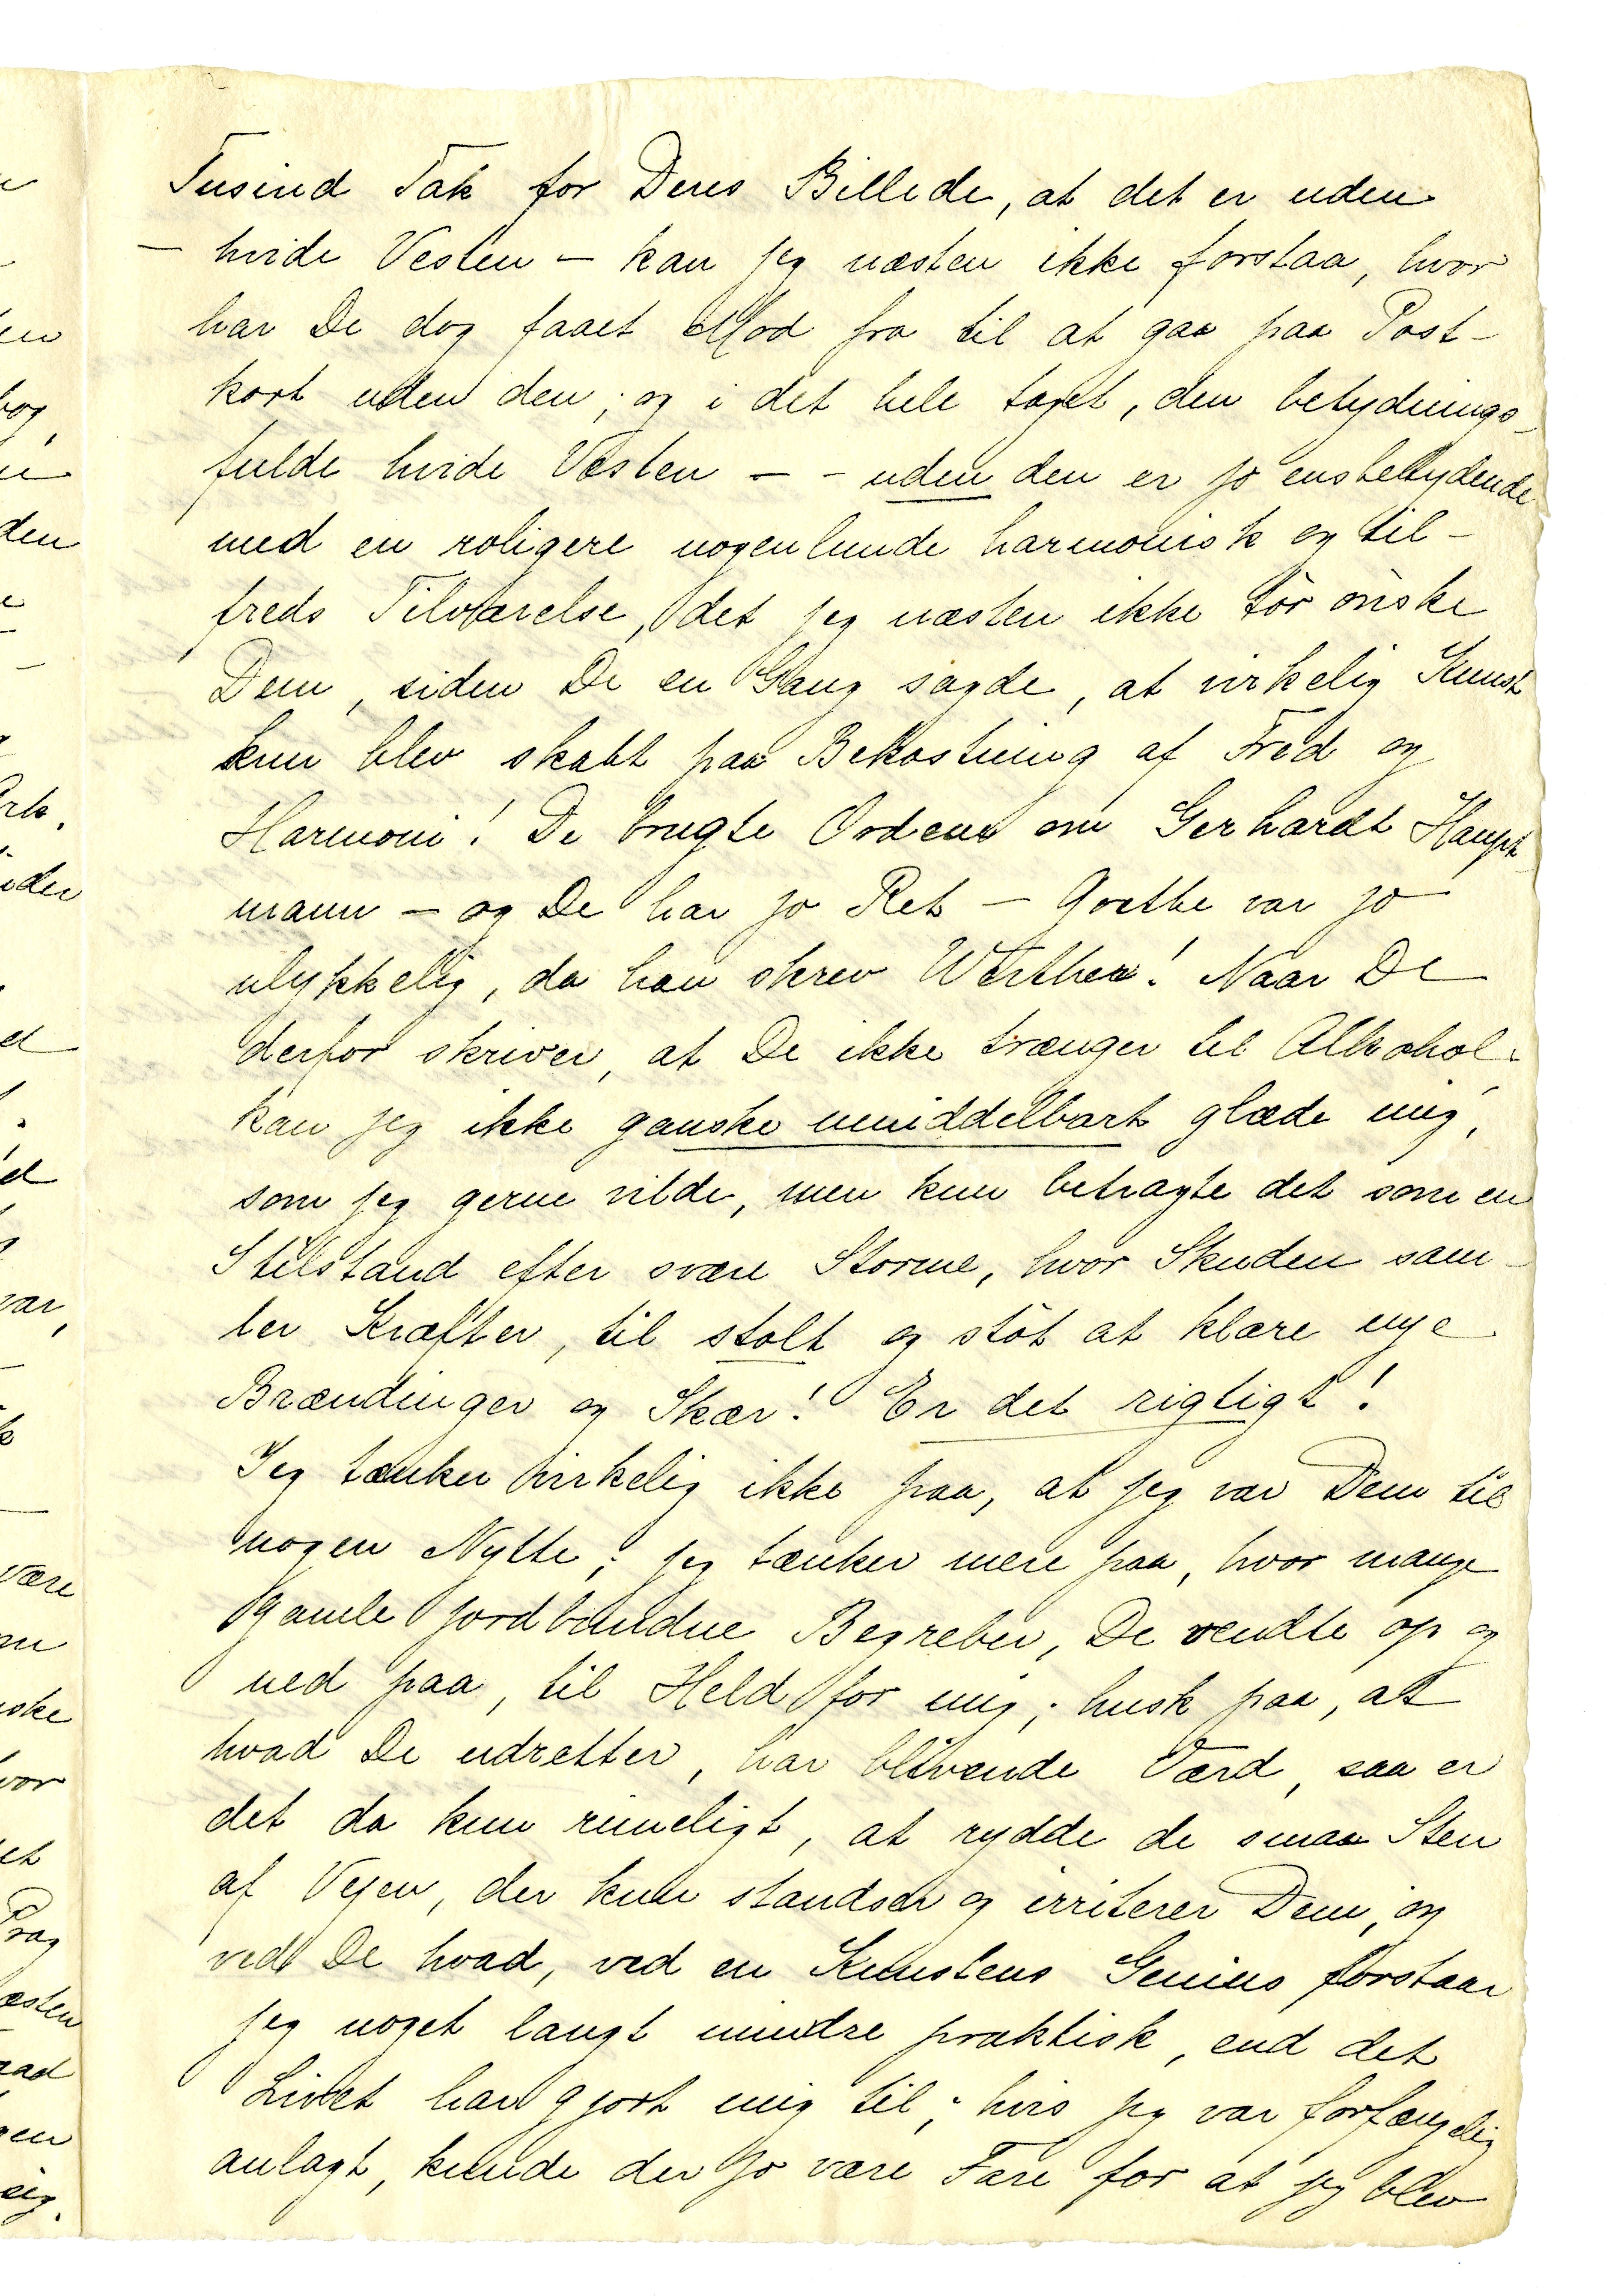 Tusind Tak for Deres Billede, at det er uden
— hvide Vesten — kan jeg næsten ikke forstaa, hvor
har De dog faaet Mod fra til at gaa paa Post-
kort uden den; og i det hele taget, den betydnings-
fulde hvide Vesten — - uden den er jo ensbetydende
med en roligere nogenlunde harmonisk og til-
freds Tilværelse, det jeg næsten ikke tör önske
Dem, siden De en Gang sagde, at virkelig Kunst
kun blev skabt paa Bekostning af Fred og
Harmoni! De brugte Ordene om Gerhardt Haupt-
mann — og De har jo Ret — Goethe var jo
ulykkelig, da han skrev Werther! Naar De
derfor skriver, at De ikke trænger til Alkohol,
kan jeg ikke ganske umiddelbart glæde mig,
som jeg gerne vilde, men kun betragte det som en
Stilstand efter svære Storme, hvor Skuden sam-
ler Kræfter, til stolt og stöt at klare nye
Brændinger og Skær! Er det rigtigt!
Jeg tænker virkelig ikke paa, at jeg var Dem til
nogen Nytte; jeg tænker mere paa, hvor mange
gamle jordbundne Begreber, De vendte op og
ned paa, til Held for mig; husk paa, at
hvad De udretter, har blivende Værd, saa er
det da kun rimeligt, at rydde de smaa Sten
af Vejen, der kun standser og irriterer Dem, og
ved De hvad, ved en Kunstens Genius forstaar
jeg noget langt mindre praktisk, end det
Livet har gjort mig til; hvis jeg var forfængelig
anlagt, kunde der jo være Fare for at jeg blev